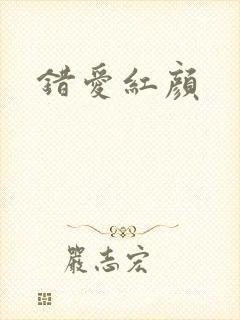 錯愛紅顏
嚴志宏